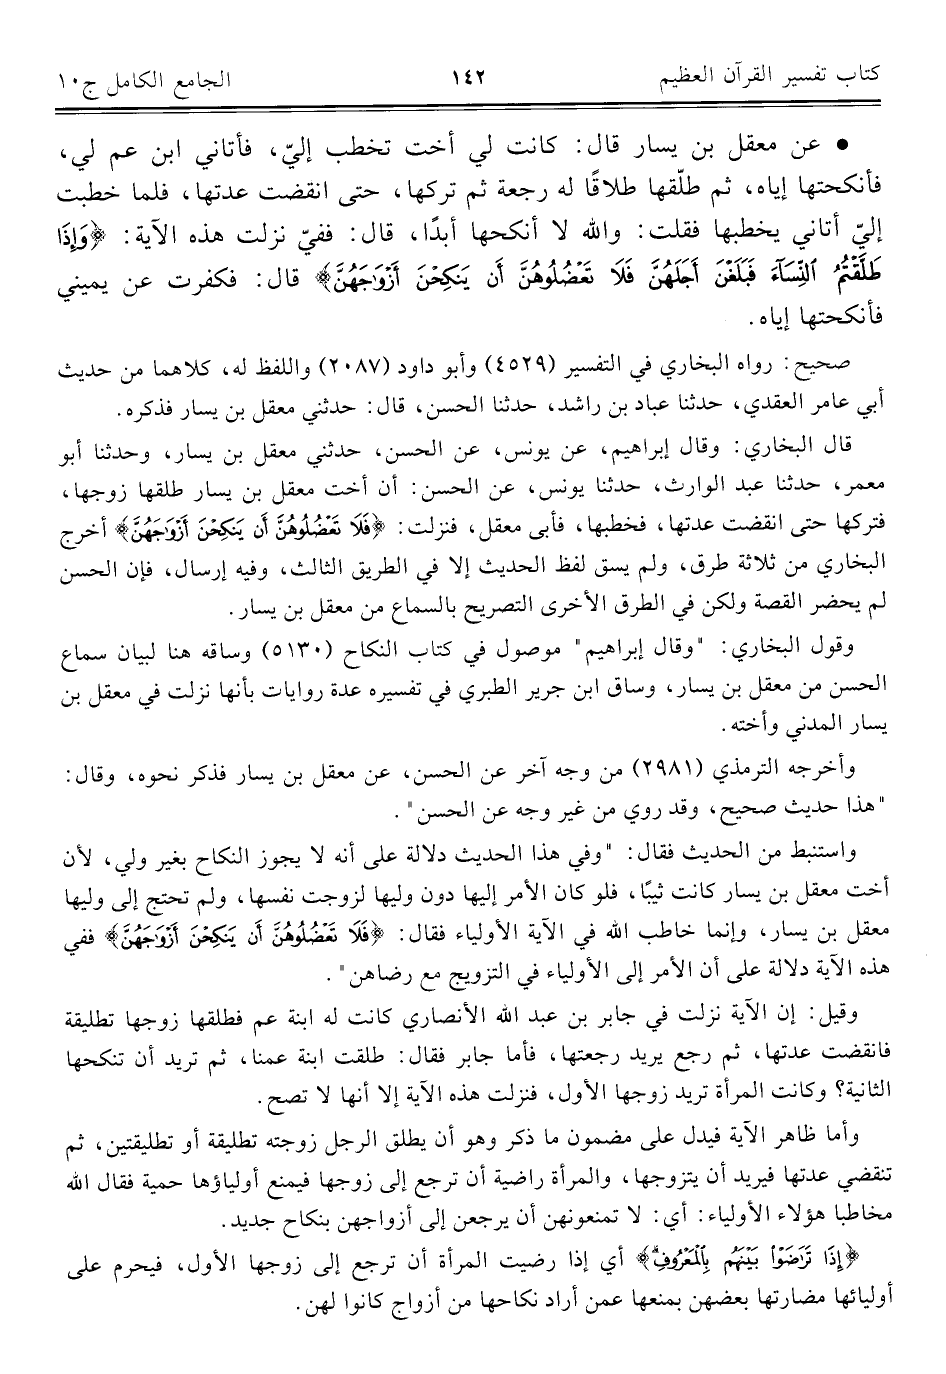 كتاب تفسير القرآن العظيم ١٤٢ الجامع الكامل ج١٠
• عن معقل بن يسار قال: كانت لي أخت تخطب إليّ، فأتاني ابن عم لي،
فأنكحتها إياه، ثم طلّقها طلاقًا له رجعة ثم تركها، حتى انقضت عدتها، فلما خطبت
إليّ أتاني يخطبها فقلت: والله لا أنكحها أبدًا، قال: ففيّ نزلت هذه الآية: ﴿وَإِذَا
طَلَّقْتُمُ ٱلنِّسَآءَ فَبَلَغْنَ أَجَلَهُنَّ فَلَا تَعْضُلُوهُنَّ أَن يَنكِحْنَ أَزْوَٰجَهُنَّ﴾ قال: فكفرت عن يميني
فأنكحتها إياه.
صحيح: رواه البخاري في التفسير (٤٥٢٩) وأبو داود (٢٠٨٧) واللفظ له، كلاهما من حديث
أبي عامر العقدي، حدثنا عباد بن راشد، حدثنا الحسن، قال: حدثني معقل بن يسار فذكره.
قال البخاري: وقال إبراهيم، عن يونس، عن الحسن، حدثني معقل بن يسار، وحدثنا أبو
معمر، حدثنا عبد الوارث، حدثنا يونس، عن الحسن: أن أخت معقل بن يسار طلقها زوجها،
فتركها حتى انقضت عدتها، فخطبها، فأبى معقل، فنزلت: ﴿فَلَا تَعْضُلُوهُنَّ أَن يَنكِحْنَ أَزْوَٰجَهُنَّ﴾ أخرج
البخاري من ثلاثة طرق، ولم يسق لفظ الحديث إلا في الطريق الثالث، وفيه إرسال، فإن الحسن
لم يحضر القصة ولكن في الطرق الأخرى التصريح بالسماع من معقل بن يسار.
وقول البخاري: "وقال إبراهيم" موصول في كتاب النكاح (٥١٣٠) وساقه هنا لبيان سماع
الحسن من معقل بن يسار، وساق ابن جرير الطبري في تفسيره عدة روايات بأنها نزلت في معقل بن
يسار المدني وأخته.
وأخرجه الترمذي (٢٩٨١) من وجه آخر عن الحسن، عن معقل بن يسار فذكر نحوه، وقال:
"هذا حديث صحيح، وقد روي من غير وجه عن الحسن".
واستنبط من الحديث فقال: "وفي هذا الحديث دلالة على أنه لا يجوز النكاح بغير ولي، لأن
أخت معقل بن يسار كانت ثيبًا، فلو كان الأمر إليها دون وليها لزوجت نفسها، ولم تحتج إلى وليها
معقل بن يسار، وإنما خاطب الله في الآية الأولياء فقال: ﴿فَلَا تَعْضُلُوهُنَّ أَن يَنكِحْنَ أَزْوَٰجَهُنَّ﴾ ففي
هذه الآية دلالة على أن الأمر إلى الأولياء في التزويج مع رضاهن".
وقيل: إن الآية نزلت في جابر بن عبد الله الأنصاري كانت له ابنة عم فطلقها زوجها تطليقة
فانقضت عدتها، ثم رجع يريد رجعتها، فأما جابر فقال: طلقت ابنة عمنا، ثم تريد أن تنكحها
الثانية؟ وكانت المرأة تريد زوجها الأول، فنزلت هذه الآية إلا أنها لا تصح.
وأما ظاهر الآية فيدل على مضمون ما ذكر وهو أن يطلق الرجل زوجته تطليقة أو تطليقتين، ثم
تنقضي عدتها فيريد أن يتزوجها، والمرأة راضية أن ترجع إلى زوجها فيمنع أولياؤها حمية فقال الله
مخاطبا هؤلاء الأولياء: أي: لا تمنعونهن أن يرجعن إلى أزواجهن بنكاح جديد.
﴿إِذَا تَرَٰضَوْا۟ بَيْنَهُم بِٱلْمَعْرُوفِۗ﴾ أي إذا رضيت المرأة أن ترجع إلى زوجها الأول، فيحرم على
أوليائها مضارتها بعضهن بمنعها عمن أراد نكاحها من أزواج كانوا لهن.